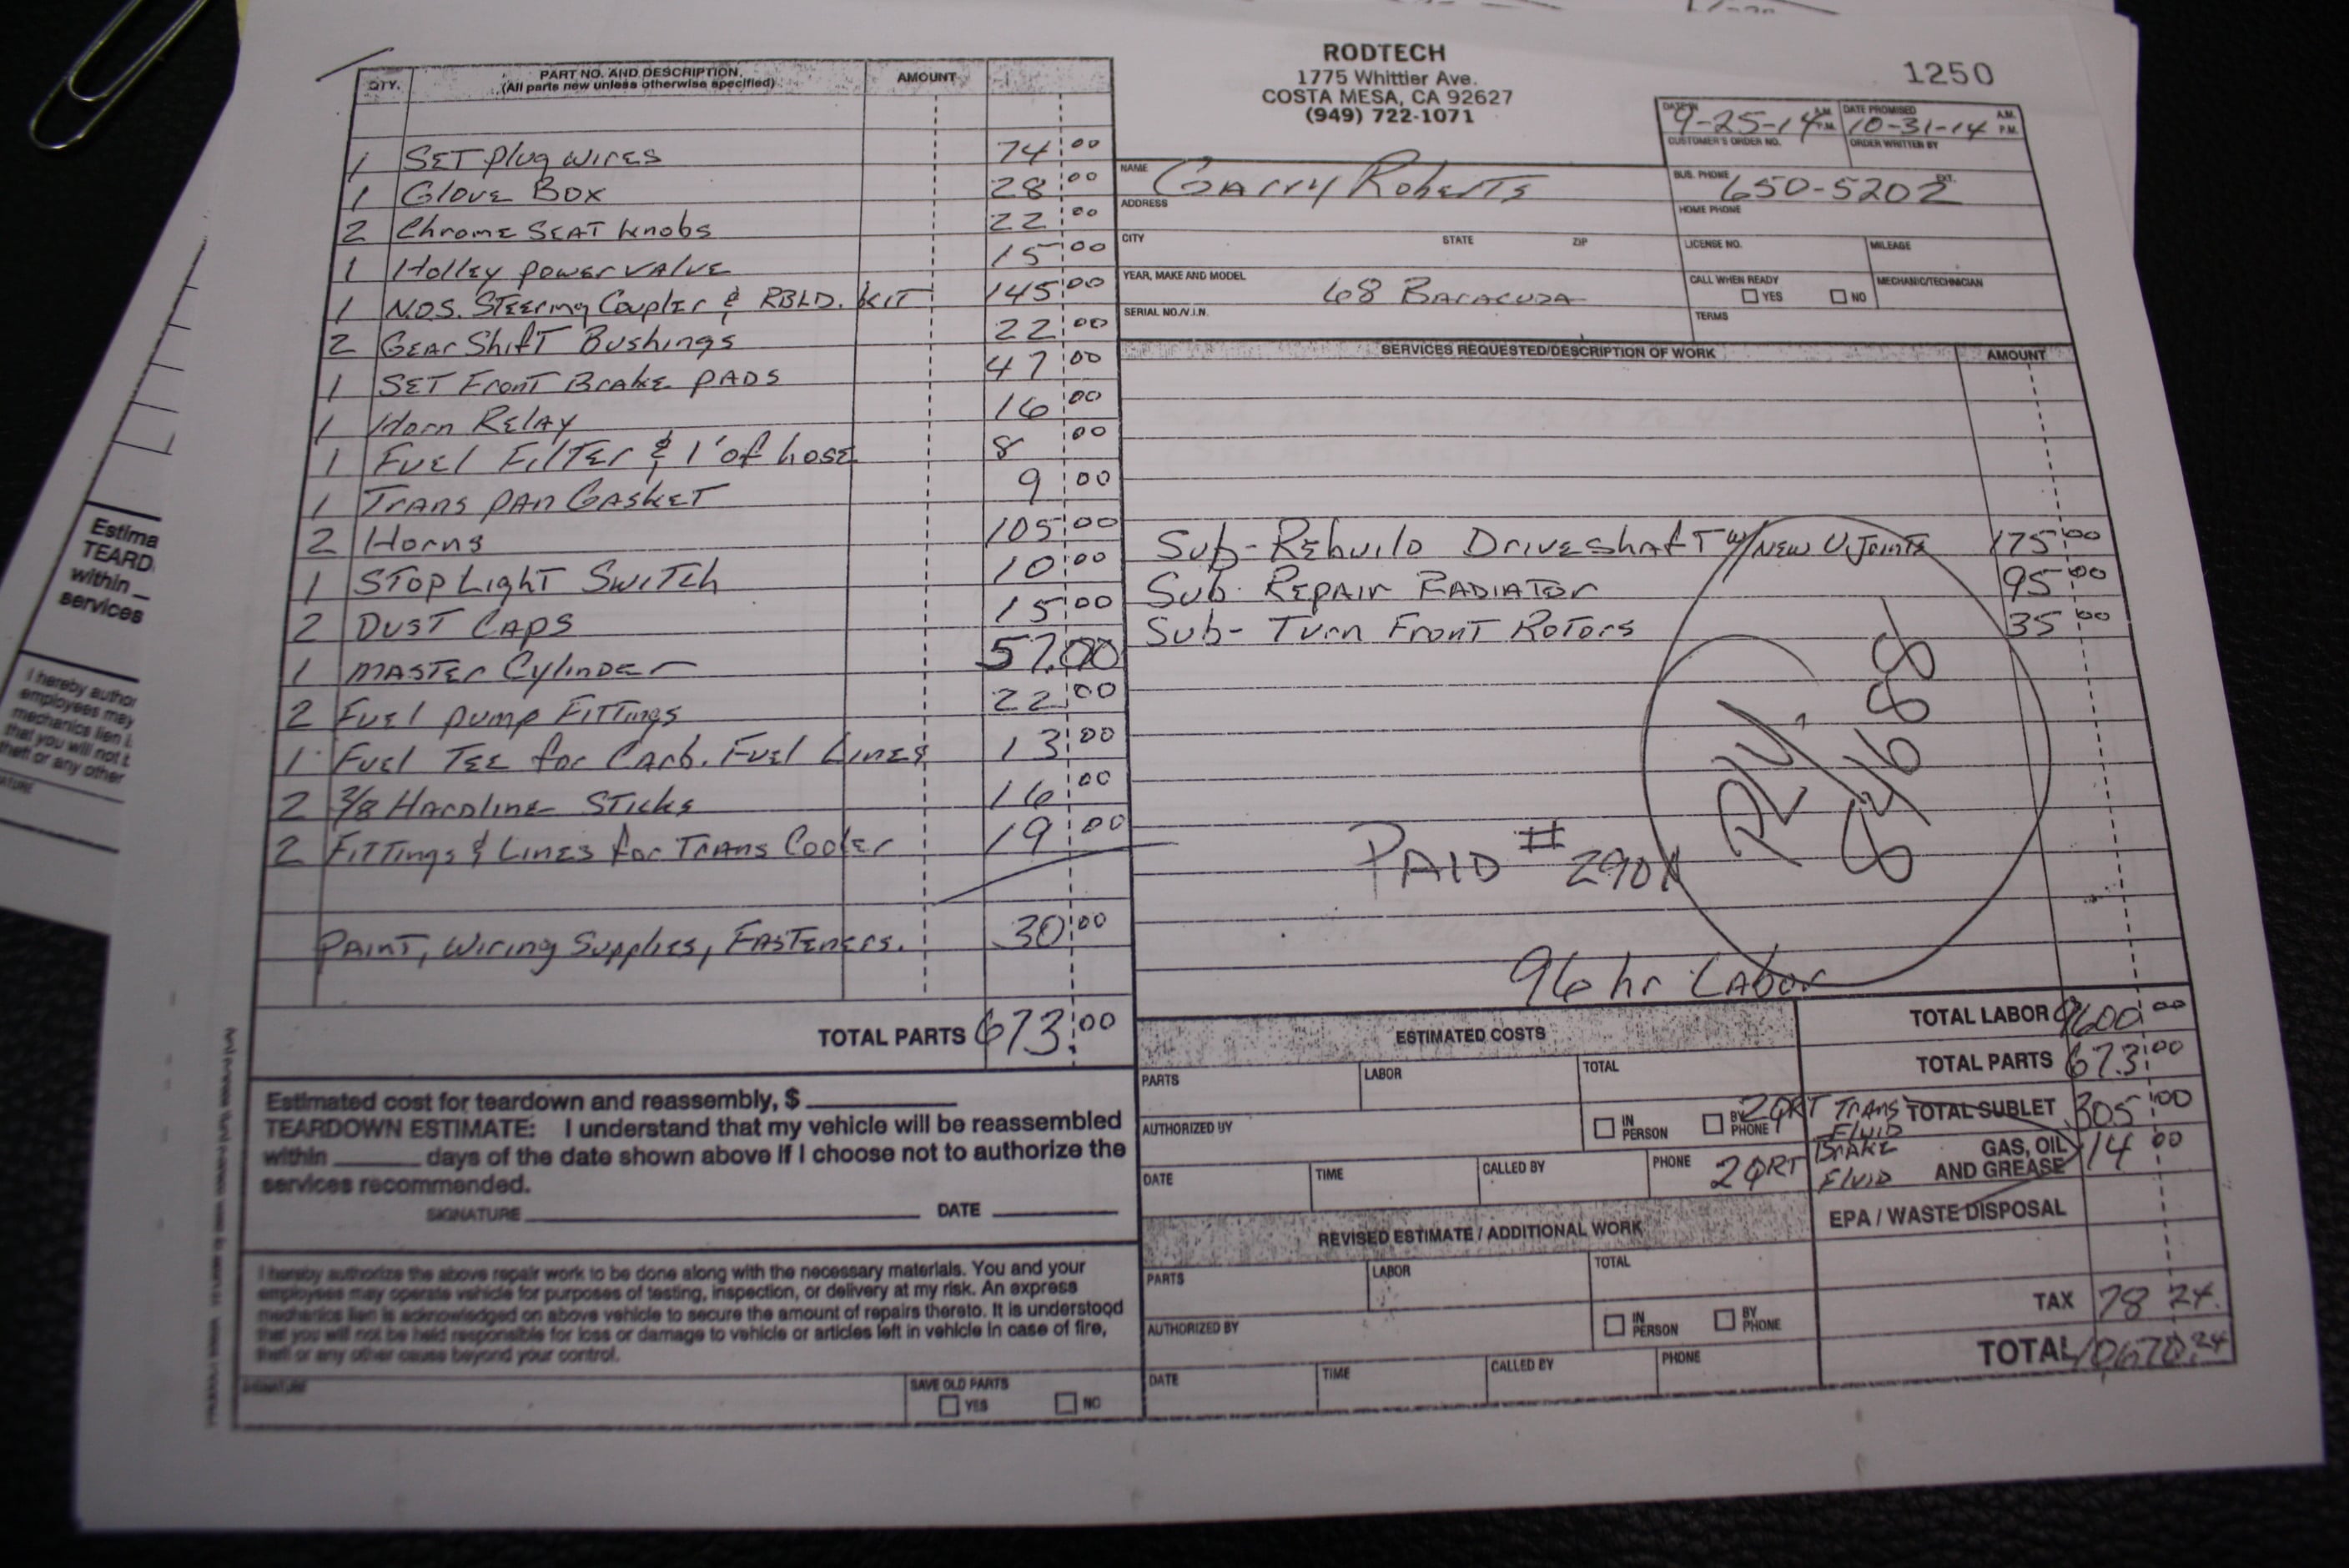 RODTECH
1775 Whittier Ave.
COSTA MESA, CA 92627
(949) 722-1071
1250
DATE IN 9-25-14 A.M. P.M. DATE PROMISED 10-31-14 A.M. P.M.
CUSTOMER'S ORDER NO. ORDER WRITTEN BY
NAME GArry Roberts
BUS. PHONE 650-5202 EXT.
ADDRESS
HOME PHONE
CITY STATE ZIP
LICENSE NO. MILEAGE
YEAR, MAKE AND MODEL 68 BArAcuDA
CALL WHEN READY YES NO MECHANIC/TECHNICIAN
SERIAL NO./V.I.N.
TERMS
QTY. PART NO. AND DESCRIPTION AMOUNT
(All parts new unless otherwise specified)
1 SET Plug wires 74 00
1 Glove Box 28 00
2 Chrome SEAT knobs 22 00
1 Holley power vALVE 15 00
1 N.O.S. Steering Coupler & RBLD. KIT 145 00
2 GEAr ShifT Bushings 22 00
1 SET FronT BrAkE PADS 47 00
1 Horn RELAY 16 00
1 FuEl FilTEr & 1' of hose 8 00
1 TrAns pAn GAskET 9 00
2 Horns 105 00
1 STop LighT SwiTch 10 00
2 DUST CAPS 15 00
1 mASTEr CylinDEr 57.00
2 FuEl pump FiTTings 22 00
1 FuEl TEE for CArb. FuEl LinES 13 00
2 3/8 HArDlinE STicks 16 00
2 FiTTings & LinES for TrAns CoolEr 19 00
PAinT, Wiring SuppliES, FASTEnErs. 30 00
TOTAL PARTS 673.00
SERVICES REQUESTED/DESCRIPTION OF WORK AMOUNT
Sub-REbuilD DriveshafT w/ NEW U.JoinTs 175 00
Sub. REpAir RADiATor 95 00
Sub- Turn FronT RoTors 35 00
PAID #
96 hr LAbor
Estimated cost for teardown and reassembly, $
TEARDOWN ESTIMATE: I understand that my vehicle will be reassembled
within days of the date shown above if I choose not to authorize the
services recommended.
SIGNATURE DATE
I hereby authorize the above repair work to be done along with the necessary materials. You and your
employees may operate vehicle for purposes of testing, inspection, or delivery at my risk. An express
mechanics lien is acknowledged on above vehicle to secure the amount of repairs thereto. It is understood
that you will not be held responsible for loss or damage to vehicle or articles left in vehicle in case of fire,
theft or any other cause beyond your control.
SIGNATURE
SAVE OLD PARTS YES NO
ESTIMATED COSTS
PARTS LABOR TOTAL
AUTHORIZED BY IN PERSON BY PHONE
DATE TIME CALLED BY PHONE
REVISED ESTIMATE / ADDITIONAL WORK
PARTS LABOR TOTAL
AUTHORIZED BY IN PERSON BY PHONE
DATE TIME CALLED BY PHONE
TOTAL LABOR 9600.00
TOTAL PARTS 673.00
2QRT TrAns FluiD
TOTAL SUBLET 305 00
2QRT BrAkE FluiD
GAS, OIL AND GREASE 14 00
EPA / WASTE DISPOSAL
TAX 78 24
TOTAL 10670.24
Estima
TEARD
within
services
I hereby author
employees may
mechanics lien i
that you will not b
theft or any other